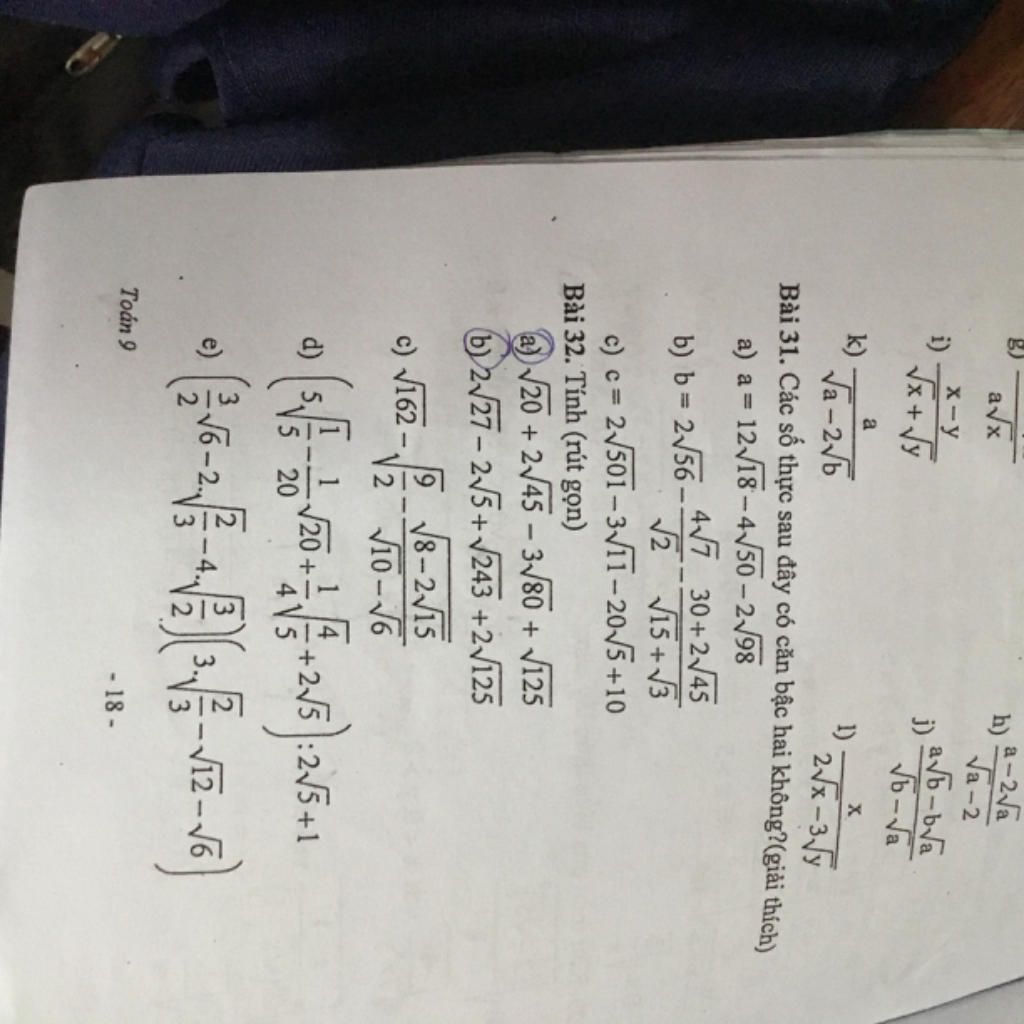 g) a√x
h) (a − 2√a)/(√a − 2)
i) (x − y)/(√x + √y)
j) (a√b − b√a)/(√b − √a)
k) a/(√a − 2√b)
l) x/(2√x − 3√y)
Bài 31. Các số thực sau đây có căn bậc hai không?(giải thích)
a) a = 12√18 − 4√50 − 2√98
b) b = 2√56 − 4√7/√2 − (30 + 2√45)/(√15 + √3)
c) c = 2√501 − 3√11 − 20√5 + 10
Bài 32. Tính (rút gọn)
a) √20 + 2√45 − 3√80 + √125
b) 2√27 − 2√5 + √243 + 2√125
c) √162 − √(9/2) − √(8 − 2√15)/(√10 − √6)
d) (5√(1/5) − 1/20 √20 + 1/4 √(4/5) + 2√5) : 2√5 + 1
e) (3/2 √6 − 2.√(2/3) − 4.√(3/2))(3.√(2/3) − √12 − √6)
Toán 9
- 18 -